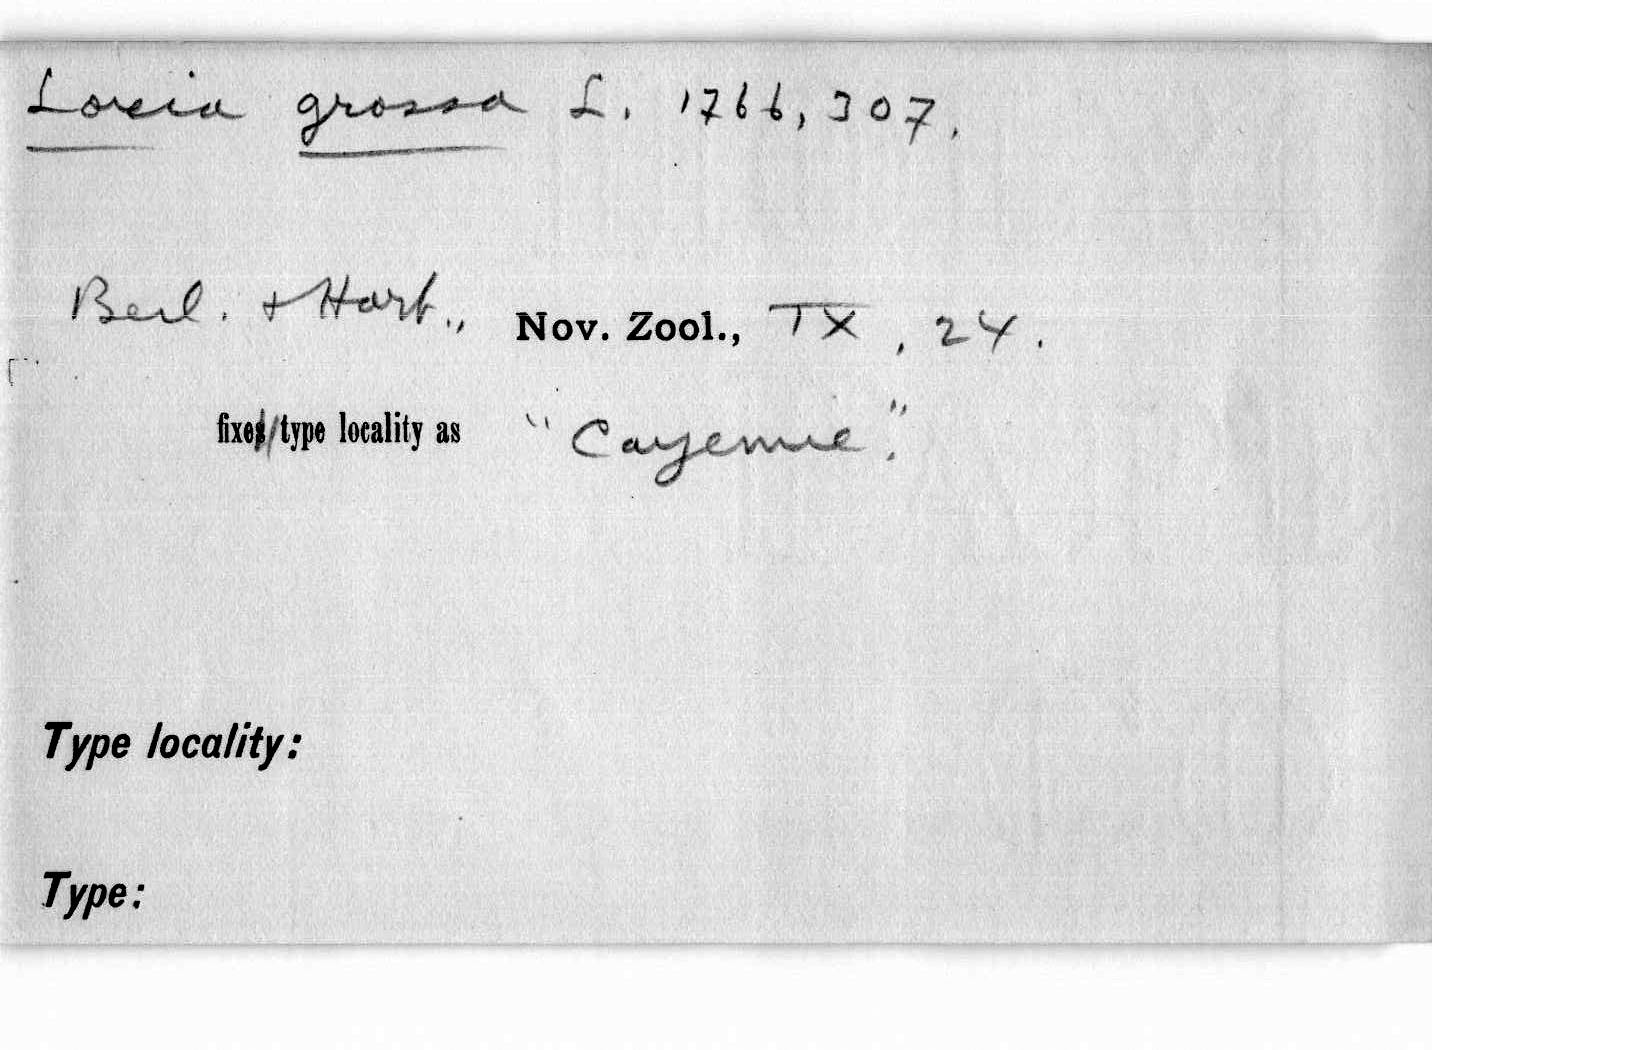 Loxia grossa L. 1766, 307.
Berl. + Hart., Nov. Zool., IX, 24.
fixes type locality as "Cayenne."
Type locality:
Type: